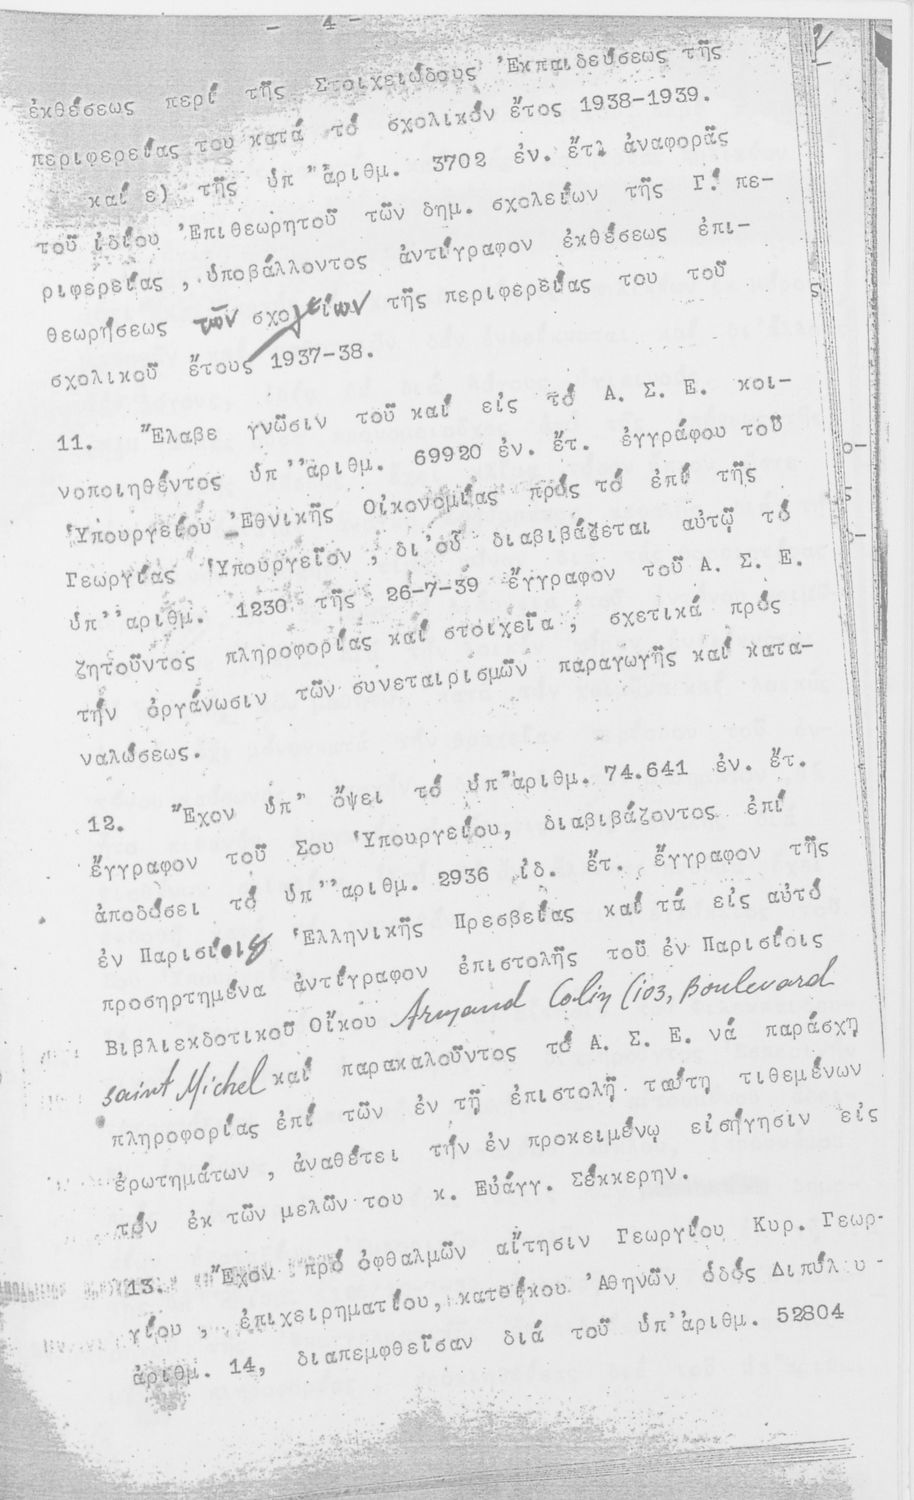 - 4 -
ἐκθέσεως περί τῆς Στοιχειώδους Ἐκπαιδεύσεως τῆς
περιφερείας του κατά τό σχολικόν ἔτος 1938-1939.
καί ε) τῆς ὑπ' ἀριθμ. 3702 ἐν. ἔτ. ἀναφορᾶς
τοῦ ἰδίου Ἐπιθεωρητοῦ τῶν δημ. σχολείων τῆς Γ. πε-
ριφερείας, ὑποβάλλοντος ἀντίγραφον ἐκθέσεως ἐπι-
θεωρήσεως τῶν σχολείων τῆς περιφερείας του τοῦ
σχολικοῦ ἔτους 1937-38.
11. Ἔλαβε γνῶσιν τοῦ καί εἰς τό Α. Σ. Ε. κοι-
νοποιηθέντος ὑπ' ἀριθμ. 69920 ἐν. ἔτ. ἐγγράφου τοῦ
Ὑπουργείου Ἐθνικῆς Οἰκονομίας πρός τό ἐπί τῆς
Γεωργίας Ὑπουργεῖον, δι' οὗ διαβιβάζεται αὐτῷ τό
ὑπ' ἀριθμ. 1230 τῆς 26-7-39 ἔγγραφον τοῦ Α. Σ. Ε.
ζητοῦντος πληροφορίας καί στοιχεῖα, σχετικά πρός
τήν ὀργάνωσιν τῶν συνεταιρισμῶν παραγωγῆς καί κατα-
ναλώσεως.
12. Ἔχον ὑπ' ὄψει τό ὑπ' ἀριθμ. 74.641 ἐν. ἔτ.
ἔγγραφον τοῦ Σου Ὑπουργείου, διαβιβάζοντος ἐπί
ἀποδόσει τό ὑπ' ἀριθμ. 2936 ἰδ. ἔτ. ἔγγραφον τῆς
ἐν Παρισίοις Ἑλληνικῆς Πρεσβείας καί τά εἰς αὐτό
προσηρτημένα ἀντίγραφον ἐπιστολῆς τοῦ ἐν Παρισίοις
Βιβλιεκδοτικοῦ Οἴκου Armand Colin (103, Boulevard
saint Michel καί παρακαλοῦντος τό Α. Σ. Ε. νά παράσχῃ
πληροφορίας ἐπί τῶν ἐν τῇ ἐπιστολῇ ταύτῃ τιθεμένων
ἐρωτημάτων, ἀναθέτει τήν ἐν προκειμένῳ εἰσήγησιν εἰς
τόν ἐκ τῶν μελῶν του κ. Εὐάγγ. Σέκκερην.
13. Ἔχον πρό ὀφθαλμῶν αἴτησιν Γεωργίου Κυρ. Γεωρ-
γίου, ἐπιχειρηματίου, κατοίκου Ἀθηνῶν ὁδός Διπύλου
ἀριθμ. 14, διαπεμφθεῖσαν διά τοῦ ὑπ' ἀριθμ. 52804